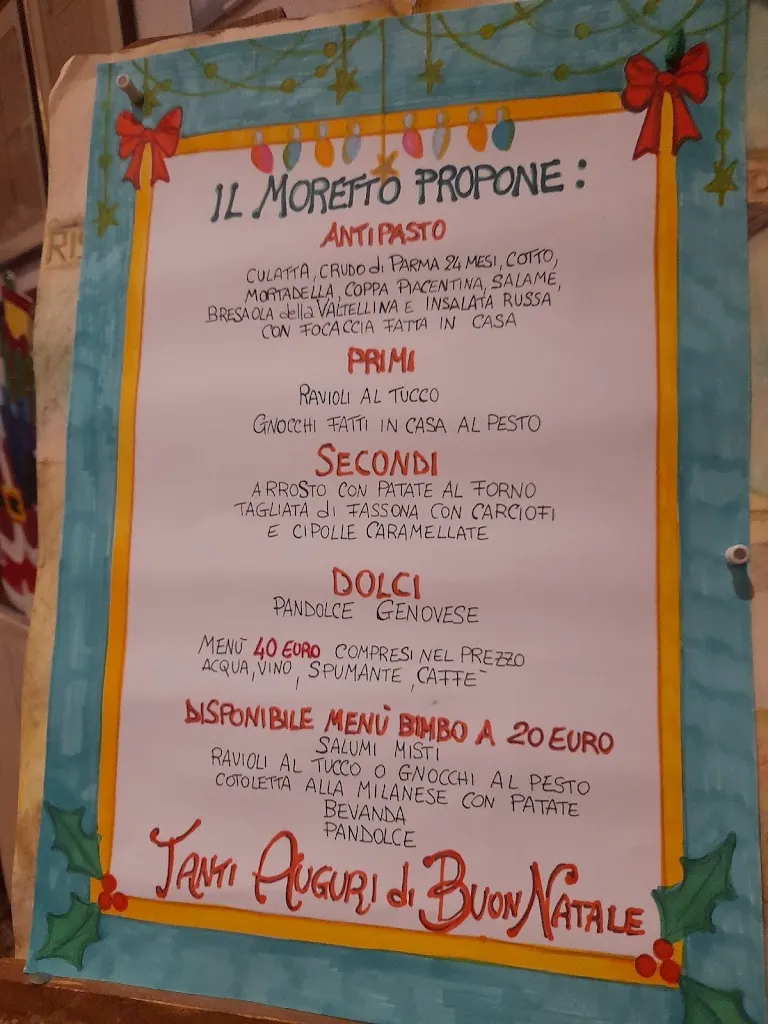 RIS
IL MORETTO PROPONE:
ANTIPASTO
CULATTA, CRUDO di PARMA 24 MESI, COTTO,
MORTADELLA, COPPA PIACENTINA, SALAME,
BRESAOLA della VALTELLINA E INSALATA RUSSA
CON FOCACCIA FATTA IN CASA
PRIMI
RAVIOLI AL TUCCO
GNOCCHI FATTI IN CASA AL PESTO
SECONDI
ARROSTO CON PATATE AL FORNO
TAGLIATA di FASSONA CON CARCIOFI
E CIPOLLE CARAMELLATE
DOLCI
PANDOLCE GENOVESE
MENÙ 40 EURO COMPRESI NEL PREZZO
ACQUA, VINO, SPUMANTE, CAFFÈ
DISPONIBILE MENÙ BIMBO A 20 EURO
SALUMI MISTI
RAVIOLI AL TUCCO O GNOCCHI AL PESTO
COTOLETTA ALLA MILANESE CON PATATE
BEVANDA
PANDOLCE
TANTI AUGURI di BUON NATALE